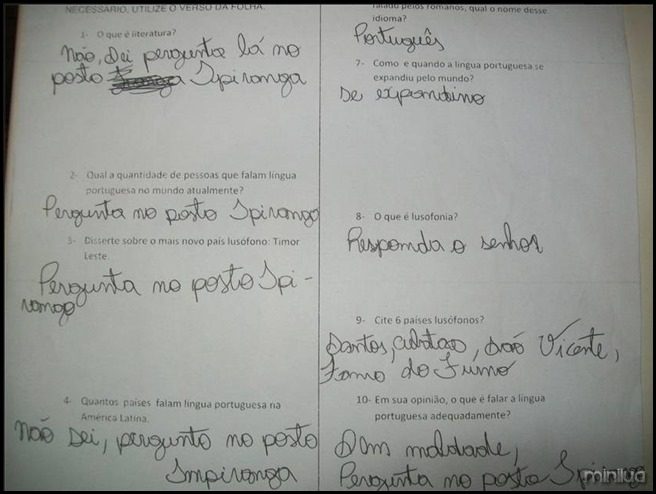 NECESSÁRIO, UTILIZE O VERSO DA FOLHA.
1- O que é literatura?
não, Sei pergunta lá no
posto Ipiranga
2- Qual a quantidade de pessoas que falam língua
portuguesa no mundo atualmente?
Pergunta no posto Ipiranga
3- Disserte sobre o mais novo país lusófono: Timor
Leste.
Pergunta no posto Ipi-
ranga
4- Quantos países falam língua portuguesa na
América Latina.
não sei, pergunta no posto
Impiranga
falado pelos romanos, qual o nome desse
idioma?
Português
7- Como e quando a língua portuguesa se
expandiu pelo mundo?
se expandino
8- O que é lusofonia?
Responda o senhor
9- Cite 6 países lusófonos?
Santos, cubatao, são Vicente,
10- Em sua opinião, o que é falar a língua
portuguesa adequadamente?
Sem maldade,
Pergunta no posto Ipiranga
minilua